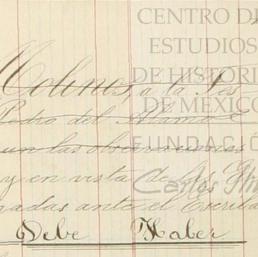 CENTRO DE
ESTUDIOS
DE HISTORI
DE MÉXICO
FUNDACIÓ
Carlos
Molinos, a la Tes
Pedro del Alamo
y en vista de los
adas ante el Escriba
Debe Haber